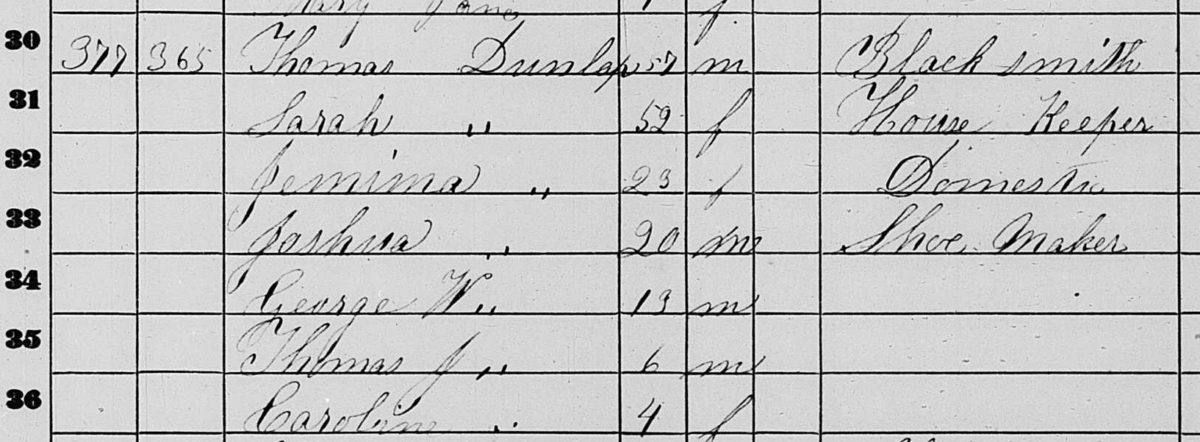 Mary Jane 1 f
30 377 365 Thomas Dunlap 57 m Black smith
31 Sarah " 52 f House Keeper
32 Jemima " 23 f Domestic
33 Joshua " 20 m Shoe Maker
34 George W " 13 m
35 Thomas J " 6 m
36 Caroline " 4 f